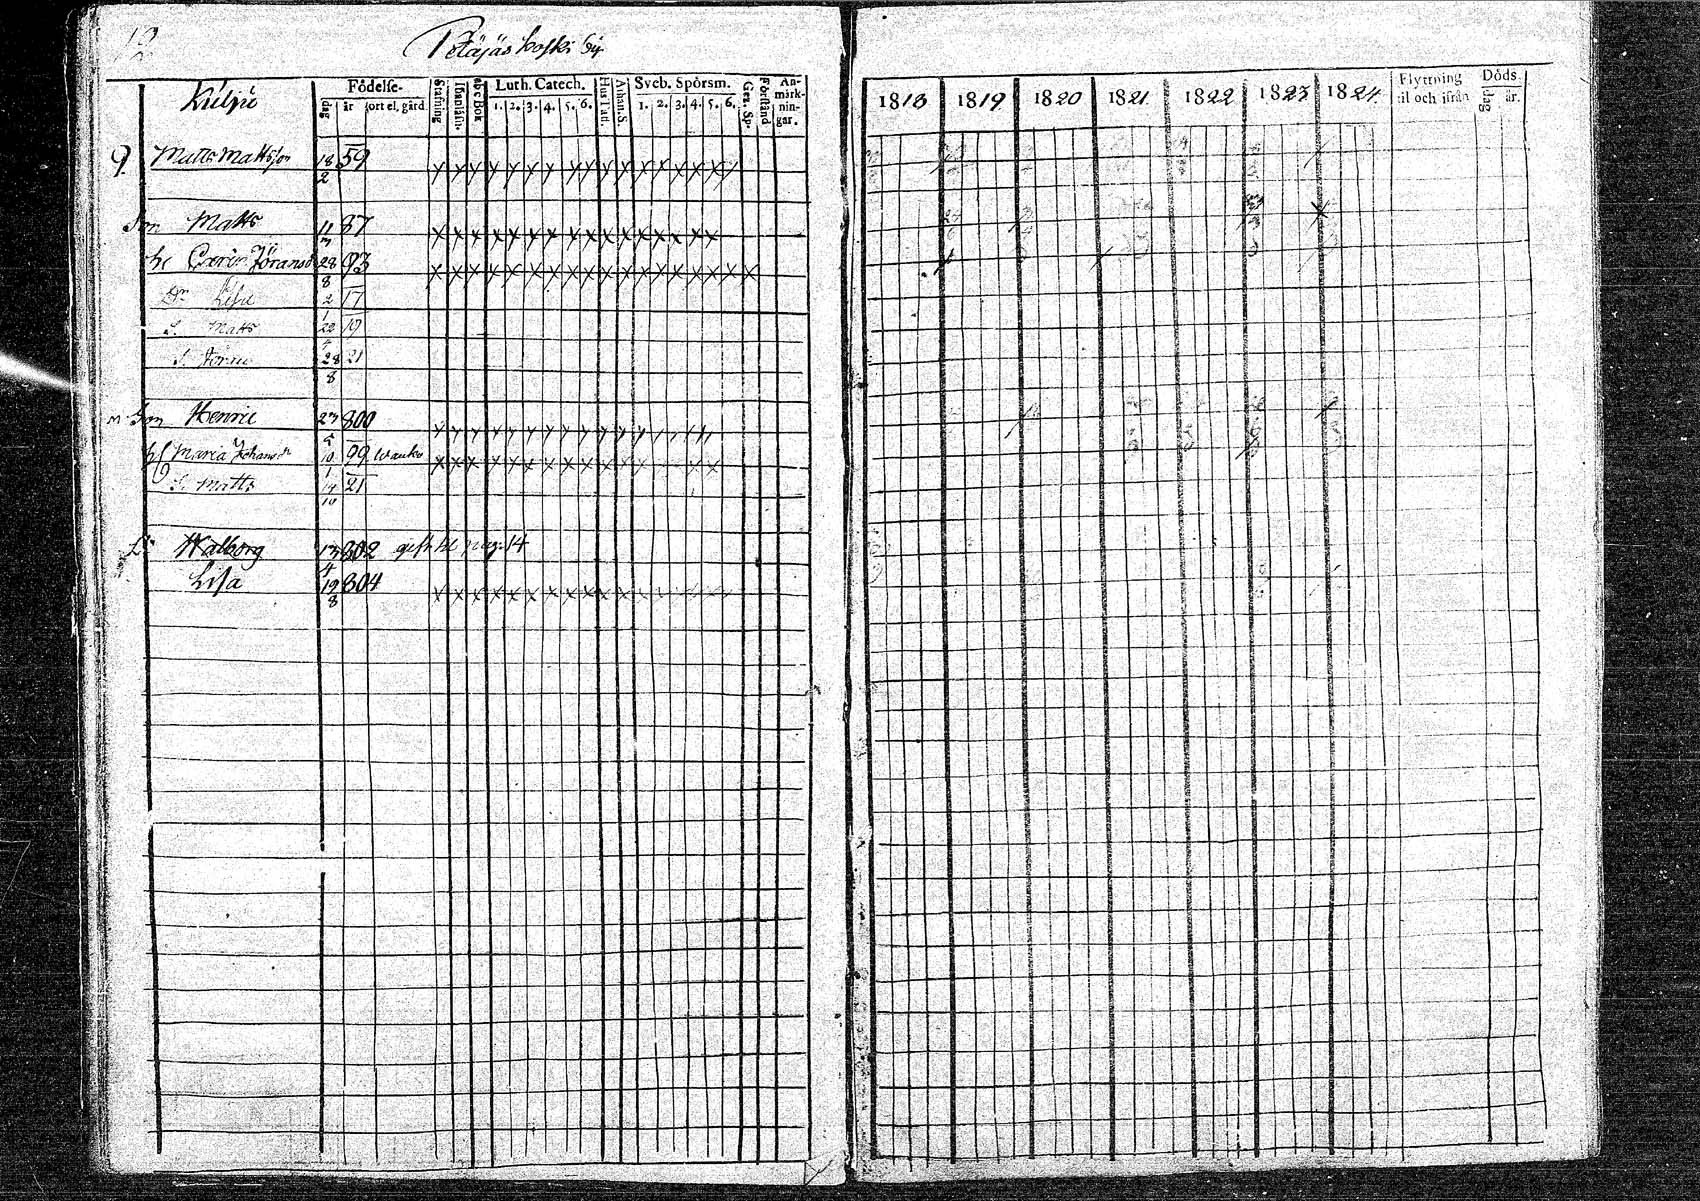 12
Petäjäskoski by
Kulju
Födelse-
dag år ort el. gård.
Stafning
Innanläsn.
abc Bok
Luth. Catech.
1. 2. 3. 4. 5. 6.
Hus Tafl.
Athan. S.
Sveb. Spörsm.
1. 2. 3. 4. 5. 6.
Gez. Sp.
Förstånd
An-
märk-
nin-
gar.
9. Matts Mattsson 18/2 59
Son Matts 11/3 87
h. Carin Jöransd. 28/8 93
Dr Lisa 2/1 17
S. Matts 22/4 19
S. 28/8 21
Son Henric 23/5 800
h. Maria Johansdr 10/1 99.
S. Matts 14/10 21
Dr Walborg 13/4 802 gift til pag. 14
Lisa 19/8 804
1818 1819 1820 1821. 1822 1823 1824.
Flyttning
til och ifrån
Döds.
dag år.